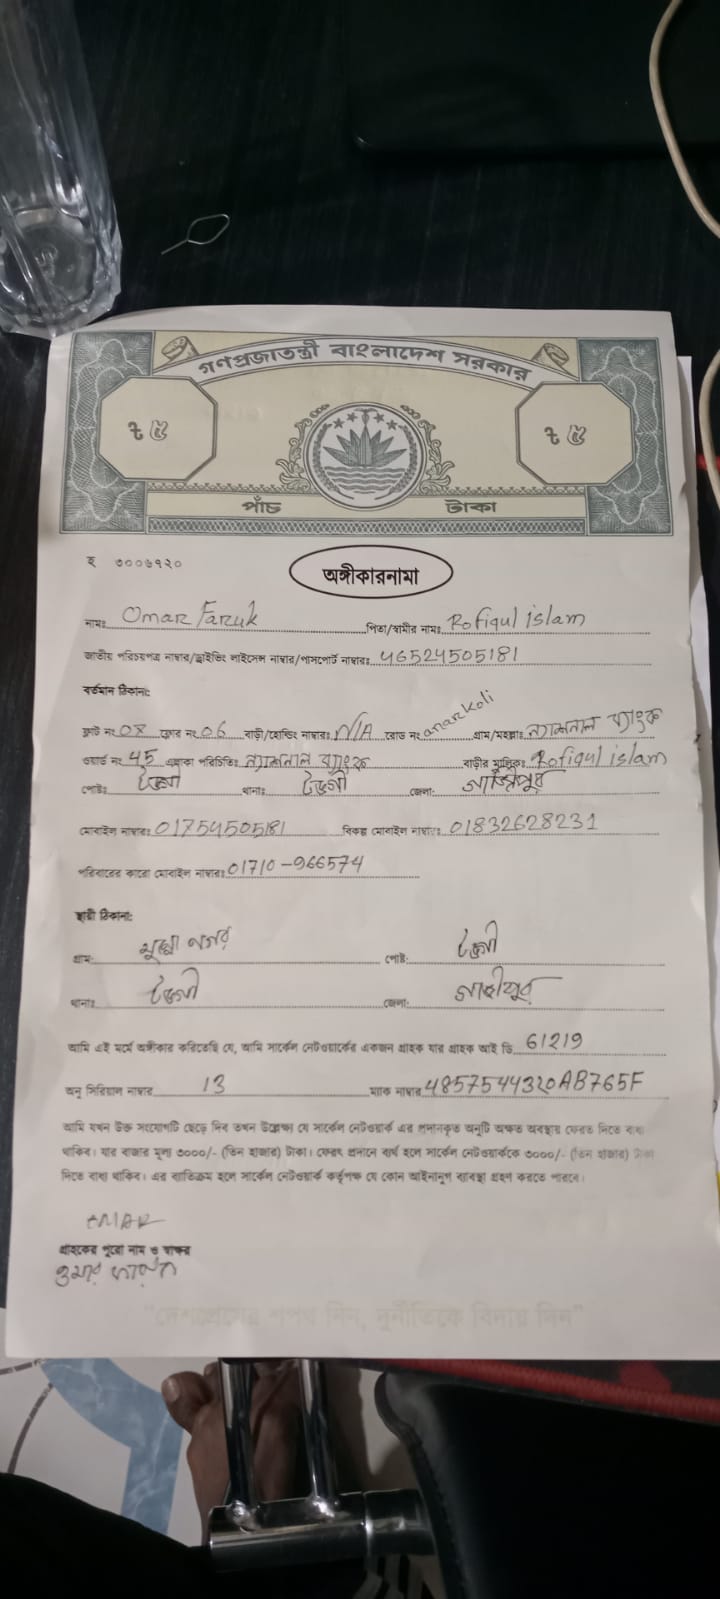 গণপ্রজাতন্ত্রী বাংলাদেশ সরকার
৳ ৫ ৳ ৫
পাঁচ টাকা
হ ৩০০৬৭২০
অঙ্গীকারনামা
নামঃ Omar Faruk পিতা/স্বামীর নামঃ Rofiqul islam
জাতীয় পরিচয়পত্র নাম্বার/ড্রাইভিং লাইসেন্স নাম্বার/পাসপোর্ট নাম্বারঃ 46524505181
বর্তমান ঠিকানা:
ফ্লাট নং 08 ফ্লোর নং 06 বাড়ী/হোল্ডিং নাম্বারঃ N/A রোড নং anarkoli গ্রাম/মহল্লাঃ ন্যাশনাল ব্যাংক
ওয়ার্ড নং 45 এলাকা পরিচিতিঃ ন্যাশনাল ব্যাংক বাড়ীর মালিকঃ Rofiqul islam
পোষ্টঃ টঙ্গী থানাঃ টঙ্গী জেলাঃ গাজীপুর
মোবাইল নাম্বারঃ 01754505181 বিকল্প মোবাইল নাম্বারঃ 01832628231
পরিবারের কারো মোবাইল নাম্বারঃ 01710-966574
স্থায়ী ঠিকানা:
গ্রাম: নগর পোষ্ট: টঙ্গী
থানাঃ টঙ্গী জেলা: গাজীপুর
আমি এই মর্মে অঙ্গীকার করিতেছি যে, আমি সার্কেল নেটওয়ার্কের একজন গ্রাহক যার গ্রাহক আই ডি 61219
অনু সিরিয়াল নাম্বার 13 ম্যাক নাম্বার 4857544320AB765F
আমি যখন উক্ত সংযোগটি ছেড়ে দিব তখন উল্লেক্ষ্য যে সার্কেল নেটওয়ার্ক এর প্রদানকৃত অনুটি অক্ষত অবস্থায় ফেরত দিতে বাধ্য
থাকিব। যার বাজার মূল্য ৩০০০/- (তিন হাজার) টাকা। ফেরৎ প্রদানে ব্যর্থ হলে সার্কেল নেটওয়ার্ককে ৩০০০/- (তিন হাজার) টাকা
দিতে বাধ্য থাকিব। এর ব্যতিক্রম হলে সার্কেল নেটওয়ার্ক কর্তৃপক্ষ যে কোন আইনানুগ ব্যবস্থা গ্রহণ করতে পারবে।
গ্রাহকের পুরো নাম ও স্বাক্ষর
ওমর ফারুক
"দেশপ্রেমের শপথ নিন, দুর্নীতিকে বিদায় দিন"